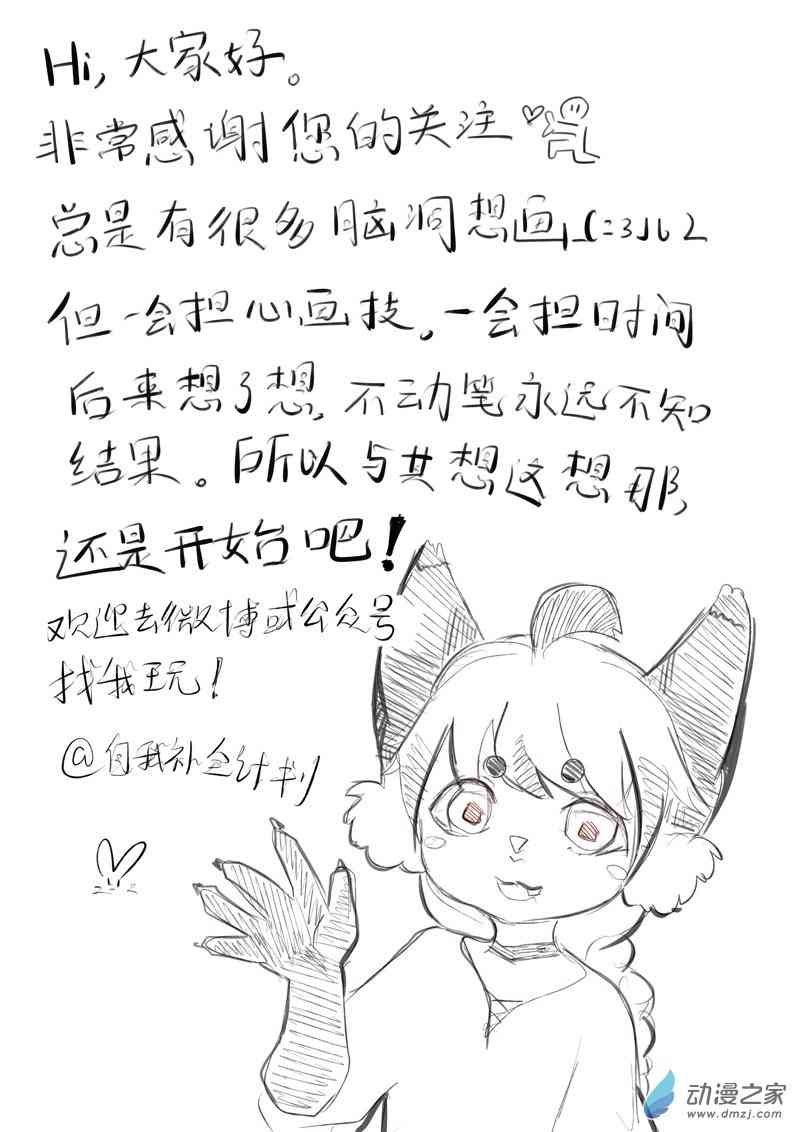 Hi,大家好。
非常感谢您的关注
总是有很多脑洞想画_(:з」∠
但一会担心画技。一会担时间
后来想了想,不动笔永远不知
结果。所以与其想这想那,
还是开始吧!
欢迎去微博或公众号
找我玩!
@自我补全计划
动漫之家
www.dmzj.com